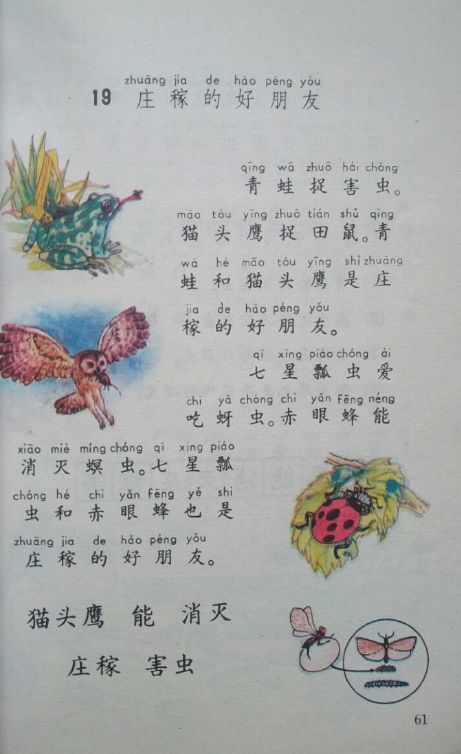 zhuāng jia de hǎo péng yǒu
19 庄稼的好朋友
qīng wā zhuō hài chóng
青蛙捉害虫。
māo tóu yīng zhuō tián shǔ qīng
猫头鹰捉田鼠。青
wā hé māo tóu yīng shì zhuāng
蛙和猫头鹰是庄
jia de hǎo péng yǒu
稼的好朋友。
qī xīng piáo chóng ài
七星瓢虫爱
chī yá chóng chì yǎn fēng néng
吃蚜虫。赤眼蜂能
xiāo miè míng chóng qī xīng piáo
消灭螟虫。七星瓢
chóng hé chì yǎn fēng yě shì
虫和赤眼蜂也是
zhuāng jia de hǎo péng yǒu
庄稼的好朋友。
猫头鹰 能 消灭
庄稼 害虫
61